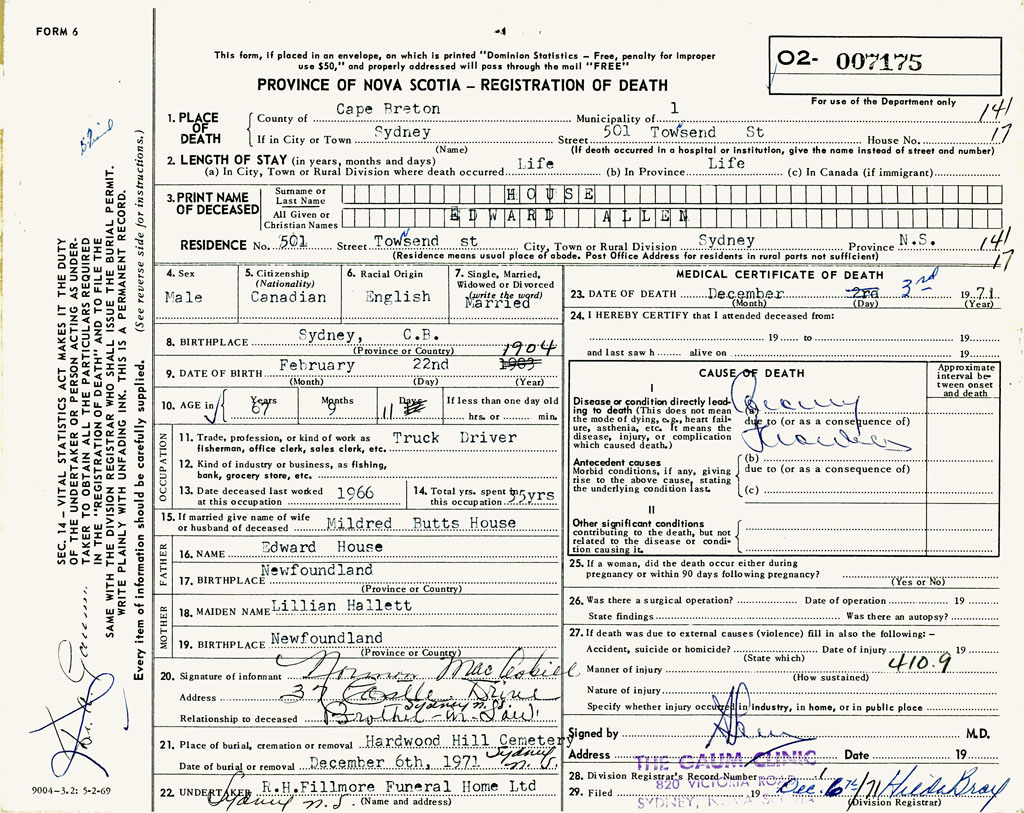 FORM 6
This form, if placed in an envelope, on which is printed "Dominion Statistics - Free, penalty for improper
use $50," and properly addressed will pass through the mail "FREE"
O2- 007175
For use of the Department only
PROVINCE OF NOVA SCOTIA - REGISTRATION OF DEATH
1. PLACE OF DEATH
County of Cape Breton Municipality of 1 141
If in City or Town Sydney Street 501 Towsend St House No. 17
(Name) (If death occurred in a hospital or institution, give the name instead of street and number)
2. LENGTH OF STAY (in years, months and days)
(a) In City, Town or Rural Division where death occurred Life (b) In Province Life (c) In Canada (if immigrant)
3. PRINT NAME OF DECEASED
Surname or Last Name HOUSE
All Given or Christian Names EDWARD ALLEN
RESIDENCE No. 501 Street Towsend st City, Town or Rural Division Sydney Province N.S. 141
(Residence means usual place of abode. Post Office Address for residents in rural parts not sufficient) 17
4. Sex
Male
5. Citizenship
(Nationality)
Canadian
6. Racial Origin
English
7. Single, Married,
Widowed or Divorced
(write the word)
Married
8. BIRTHPLACE Sydney, C.B.
(Province or Country)
9. DATE OF BIRTH February 22nd 1903 1904
(Month) (Day) (Year)
10. AGE in Years 67 Months 9 Days 11 If less than one day old
hrs. or min.
OCCUPATION
11. Trade, profession, or kind of work as Truck Driver
fisherman, office clerk, sales clerk, etc.
12. Kind of industry or business, as fishing,
bank, grocery store, etc.
13. Date deceased last worked 1966
at this occupation
14. Total yrs. spent in
this occupation 35yrs
15. If married give name of wife
or husband of deceased Mildred Butts House
FATHER
16. NAME Edward House
17. BIRTHPLACE Newfoundland
(Province or Country)
MOTHER
18. MAIDEN NAME Lillian Hallett
19. BIRTHPLACE Newfoundland
(Province or Country)
20. Signature of informant Norman MacAskill
Address 37 Castle Drive
Sydney N.S.
Relationship to deceased Brother-in-law
21. Place of burial, cremation or removal Hardwood Hill Cemetery
Sydney N.S.
Date of burial or removal December 6th, 1971
22. UNDERTAKER R.H.Fillmore Funeral Home Ltd
Sydney N.S. (Name and address)
MEDICAL CERTIFICATE OF DEATH
23. DATE OF DEATH December 2rd 3rd 1971
(Month) (Day) (Year)
24. I HEREBY CERTIFY that I attended deceased from:
19 to 19
and last saw h alive on 19
CAUSE OF DEATH
Approximate interval between onset and death
I
Disease or condition directly leading to death (This does not mean
the mode of dying, e.g., heart failure, asthenia, etc. It means the
disease, injury, or complication
which caused death.)
(a) Coronary
due to (or as a consequence of)
Antecedent causes
Morbid conditions, if any, giving
rise to the above cause, stating
the underlying condition last.
(b)
due to (or as a consequence of)
(c)
II
Other significant conditions
contributing to the death, but not
related to the disease or condition causing it.
25. If a woman, did the death occur either during
pregnancy or within 90 days following pregnancy?
(Yes or No)
26. Was there a surgical operation? Date of operation 19
State findings Was there an autopsy?
27. If death was due to external causes (violence) fill in also the following: -
Accident, suicide or homicide? Date of injury 19
(State which)
Manner of injury 410.9
(How sustained)
Nature of injury
Specify whether injury occured in industry, in home, or in public place
Signed by M.D.
Address Date 19
THE GAUM CLINIC
820 VICTORIA ROAD
SYDNEY, NOVA SCOTIA
28. Division Registrar's Record Number 1
29. Filed 19 Dec. 6th/71 Hilda Bray
(Division Registrar)
SEC. 14 - VITAL STATISTICS ACT MAKES IT THE DUTY
OF THE UNDERTAKER OR PERSON ACTING AS UNDER-
TAKER TO OBTAIN ALL THE PARTICULARS REQUIRED
IN THE "REGISTRATION OF DEATH" AND TO FILE THE
SAME WITH THE DIVISION REGISTRAR WHO SHALL ISSUE THE BURIAL PERMIT.
WRITE PLAINLY WITH UNFADING INK. THIS IS A PERMANENT RECORD.
Every item of information should be carefully supplied. (See reverse side for instructions.)
9004-3.2: 5-2-69